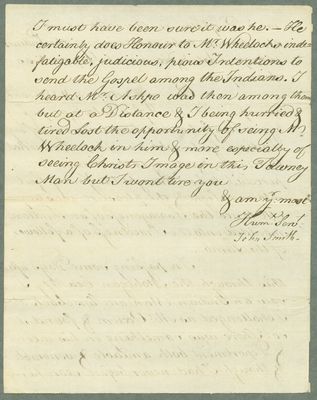 I must have been sure it was he. — He
certainly does Honour to Mr. Wheelocks inde-
fatigable, judicious, pious Intentions to
send the Gospel among the Indians. I
heard Mr. Ashpo was then among them
but at a Distance & I being hurried &
tired lost the opportunity of seing Mr.
Wheelock in him & more especially of
seeing Christs Image in this Tawney
Man but I wont tire you
& am yr. most
Hum. Servt.
John Smith.